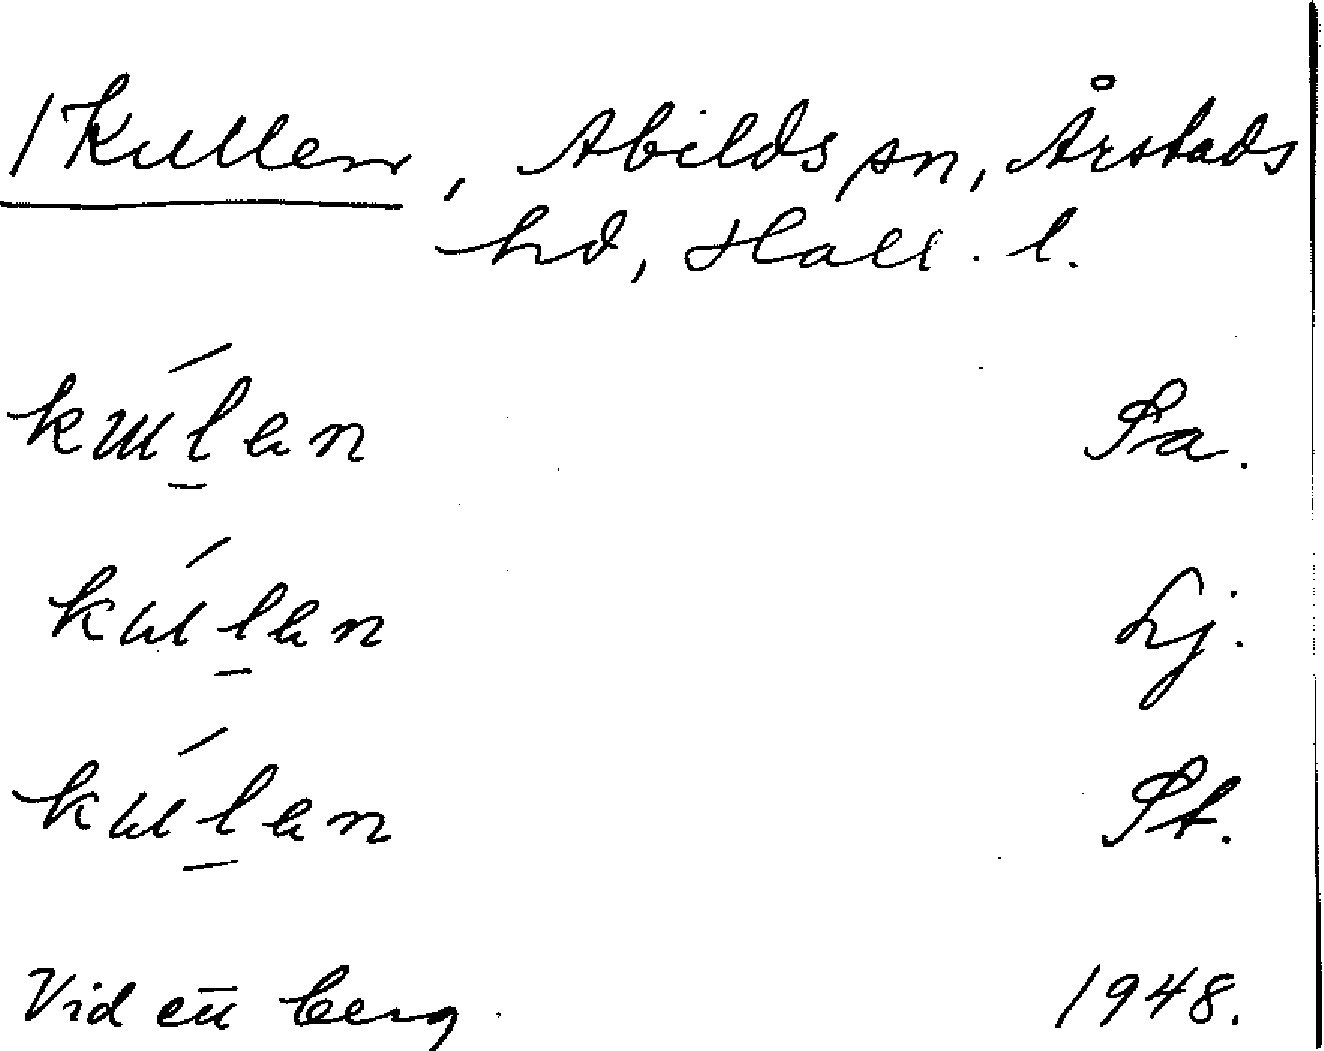 1 Kullen, Abilds sn, Årstads
hd, Hall. l.
kúlan Pa.
kúlan Lj.
kúlan Pt.
Vid ett berg. 1948.